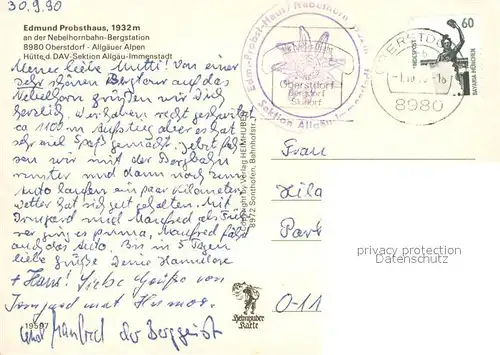 30.9.90
Edmund Probsthaus, 1932 m
an der Nebelhornbahn-Bergstation
8980 Oberstdorf - Allgäuer Alpen
Hütte d. DAV-Sektion Allgäu-Immenstadt
Meine liebe Mutti! Von einer
sehr schönen Bergtour auf das
Nebelhorn grüßen wir Dich
herzlich. Wir haben recht geschwitzt
ca 1100 m Aufstieg aber es hat
sehr viel Spaß gemacht. Jetzt fah-
ren wir mit der Bergbahn
runter und dann noch zum
Auto laufen ein paar Kilometer.
Wetter hat sich gut gehalten. Mit
Irmgard und Manfred als
war ging es prima, Manfred fährt
auch das Auto. Bis in 5 Tagen
liebe Grüße Deine Hannelore
+ Hans! Liebe Grüße von
Irmgard
und Manfred der Berggeist
19507
Edm.-Probst-Haus / Nebelhorn
Oberstdorf
Sektion Allgäu-Immenstadt
OBERSTDORF
8980
60
DEUTSCHE BUNDESPOST
BAVARIA MÜNCHEN
Copyright by Verlag HEIMHUBER
8972 Sonthofen, Bahnhofstr.
Frau
Hila
Park
O-11
Heimhuber
Karte
privat copyright protection
DALMATE.COM